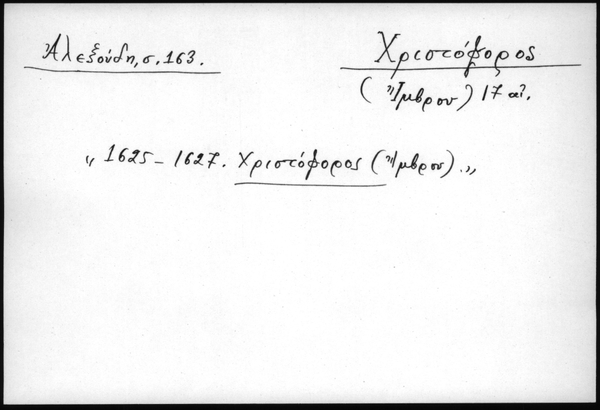 Ἀλεξούδη, σ. 163.
Χριστόφορος
(Ἴμβρου) 17 αἰ.
„ 1625 – 1627. Χριστόφορος (Ἴμβρου) . „